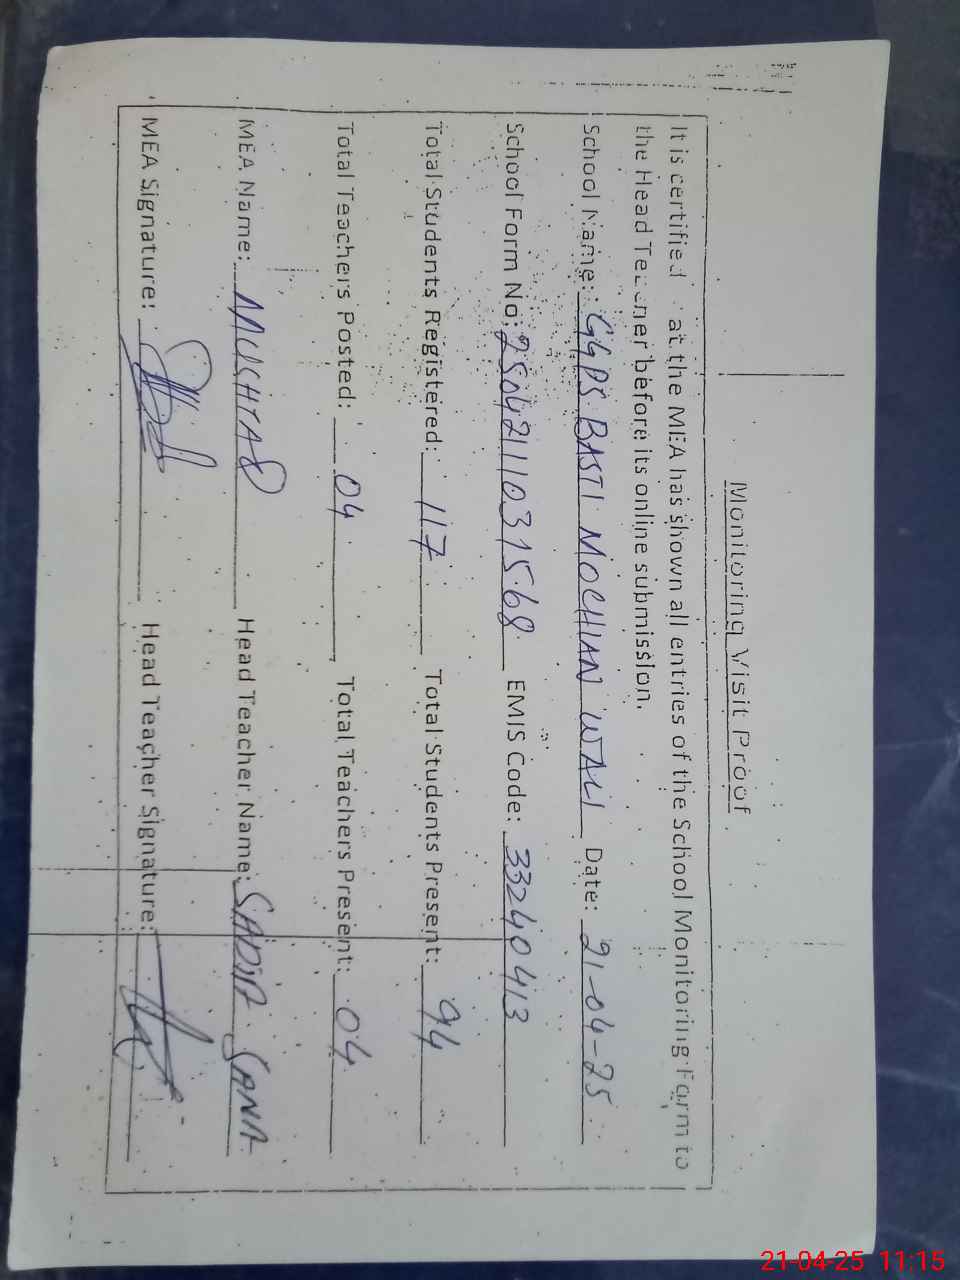 Monitoring Visit Proof
It is certified at the MEA has shown all entries of the School Monitoring Form to
the Head Teacher before its online submission.
School Name: GGPS BASTI MOCHIAN WALI Date: 21-04-25
School Form No: 25042111031568 EMIS Code: 33240413
Total Students Registered: 117 Total Students Present: 94
Total Teachers Posted: 04 Total Teachers Present: 04
MEA Name: MUCHTAR Head Teacher Name: SADIIA SANA
MEA Signature: Head Teacher Signature:
21-04-25 11:15